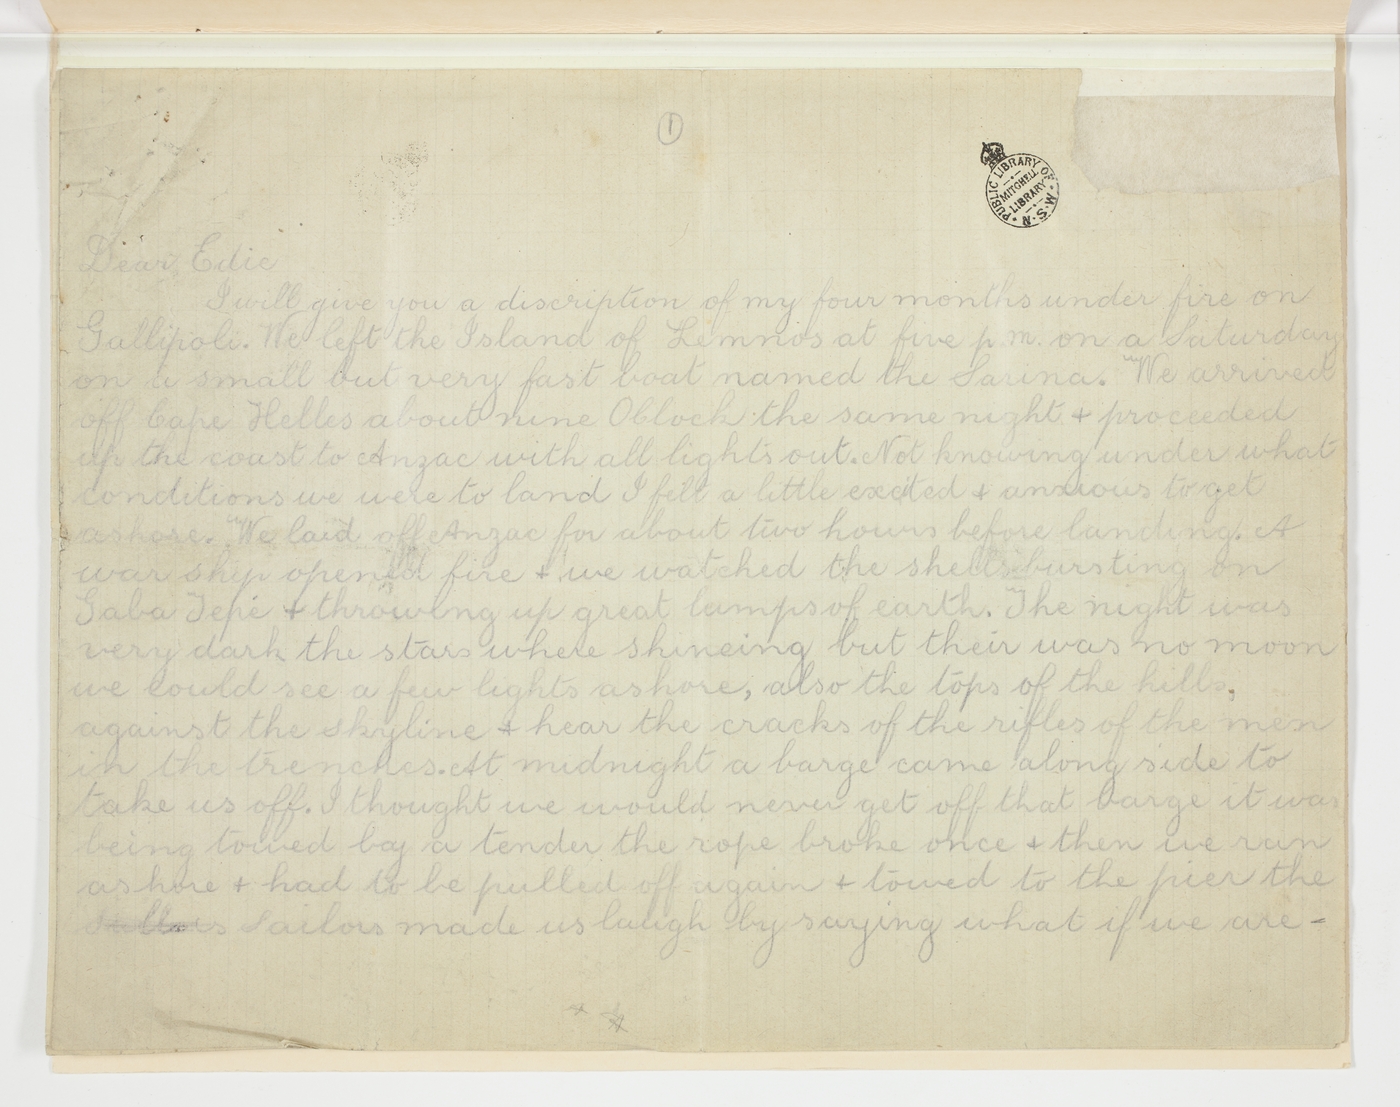 1
PUBLIC LIBRARY OF N.S.W.
MITCHELL
LIBRARY
Dear Edie
I will give you a discription of my four months under fire on
Gallipoli. We left the Island of Lemnos at five p.m. on a Saturday
on a small but very fast boat named the Sarina. We arrived
off Cape Helles about nine OClock the same night + proceeded
up the coast to Anzac with all lights out. Not knowing under what
conditions we were to land I felt a little excited + anxious to get
ashore. We laid off Anzac for about two hours before landing. A
war ship opened fire + we watched the shells bursting on
Gaba Tepé + throwing up great lumps of earth. The night was
very dark the stars where shineing but their was no moon
we could see a few lights ashore, also the tops of the hills,
against the skyline + hear the cracks of the rifles of the men
in the trenches. At midnight a barge came along side to
take us off. I thought we would never get off that barge it was
being towed by a tender the rope broke once + then we run
ashore + had to be pulled off again + towed to the pier the
Sailors made us laugh by saying what if we are -